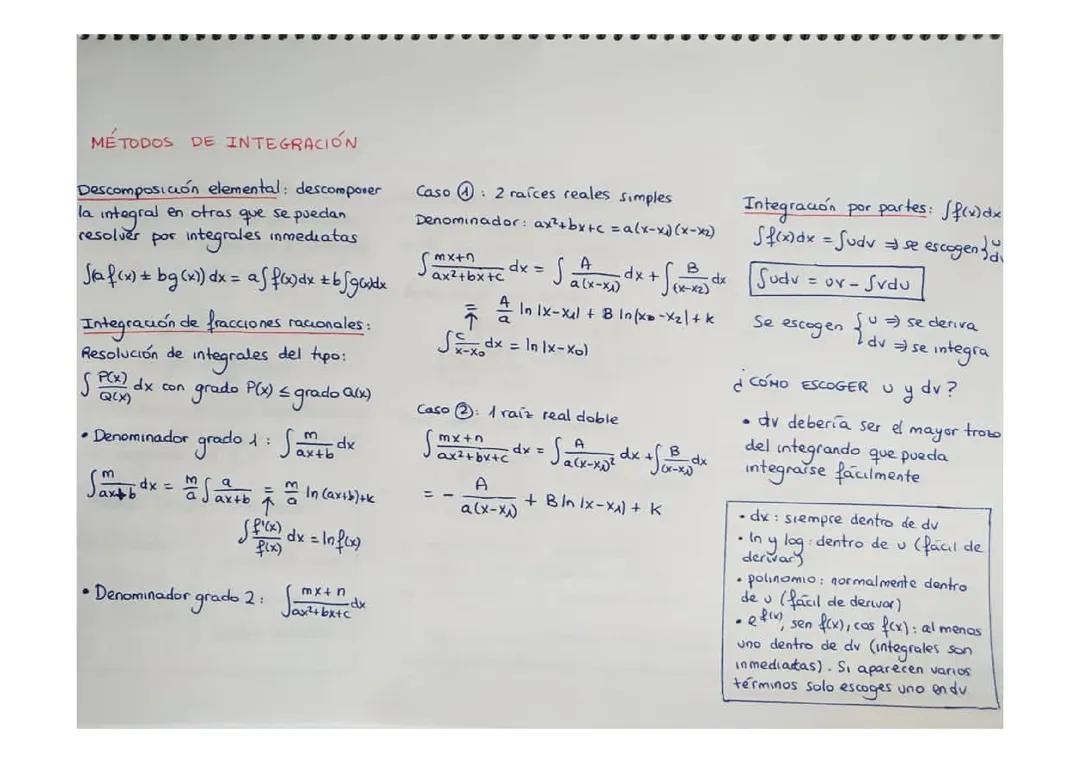 MÉTODOS DE INTEGRACIÓN
Descomposición elemental: descomponer
la integral en otras que se puedan
resolver por integrales inmediatas
∫(a f(x) ± b g(x)) dx = a ∫ f(x)dx ± b ∫ g(x)dx
Integración de fracciones racionales:
Resolución de integrales del tipo:
∫ P(x)/Q(x) dx con grado P(x) ≤ grado Q(x)
• Denominador grado 1: ∫ m/(ax+b) dx
∫ m/(ax+b) dx = m/a ∫ a/(ax+b) = m/a ln (ax+b)+k
↑
∫ f'(x)/f(x) dx = ln f(x)
• Denominador grado 2: ∫ (mx+n)/(ax²+bx+c) dx
Caso ①: 2 raíces reales simples
Denominador: ax²+bx+c = a(x-x₁)(x-x₂)
∫ (mx+n)/(ax²+bx+c) dx = ∫ A/(a(x-x₁)) dx + ∫ B/(x-x₂) dx
= A/a ln |x-x₁| + B ln |x-x₂| + k
↑
∫ c/(x-x₀) dx = ln |x-x₀|
Caso ②: 1 raíz real doble
∫ (mx+n)/(ax²+bx+c) dx = ∫ A/(a(x-x₁)²) dx + ∫ B/(x-x₁) dx
= - A/(a(x-x₁)) + B ln |x-x₁| + k
Integración por partes: ∫ f(x) dx
∫ f(x) dx = ∫ u dv ⇒ se escogen { u
dv
∫ u dv = uv - ∫ v du
Se escogen { u ⇒ se deriva
dv ⇒ se integra
¿CÓMO ESCOGER u y dv?
• dv debería ser el mayor trozo
del integrando que pueda
integrarse fácilmente
• dx: siempre dentro de dv
• ln y log: dentro de u (fácil de
derivar)
• polinomio: normalmente dentro
de u (fácil de derivar)
• e^f(x), sen f(x), cos f(x): al menos
uno dentro de dv (integrales son
inmediatas). Si aparecen varios
términos solo escoges uno en dv